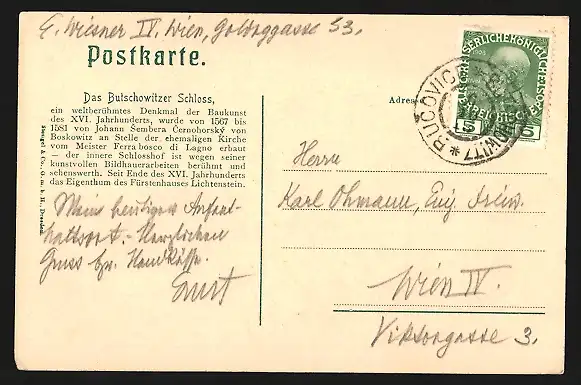 E. Wiesner IV. Wien, Goldeggasse 33.
Postkarte.
Das Butschowitzer Schloss,
ein weltberühmtes Denkmal der Baukunst
des XVI. Jahrhunderts, wurde von 1567 bis
1581 von Johann Šembera Černohorský von
Boskowitz an Stelle der ehemaligen Kirche
vom Meister Ferrabosco di Lagno erbaut
– der innere Schlosshof ist wegen seiner
kunstvollen Bildhauerarbeiten berühmt und
sehenswerth. Seit Ende des XVI. Jahrhunderts
das Eigenthum des Fürstenhauses Lichtenstein.
Stengel & Co., G. m. b. H., Dresden
Mein heutiger Aufent-
haltsort. - Herzlichen
Gruss
Adres
KAISERLICHEKÖNIGLICHE
5 5
BUČOVIC
Herrn
Karl Ohmann,
Wien IV.
Viktorgasse 3.